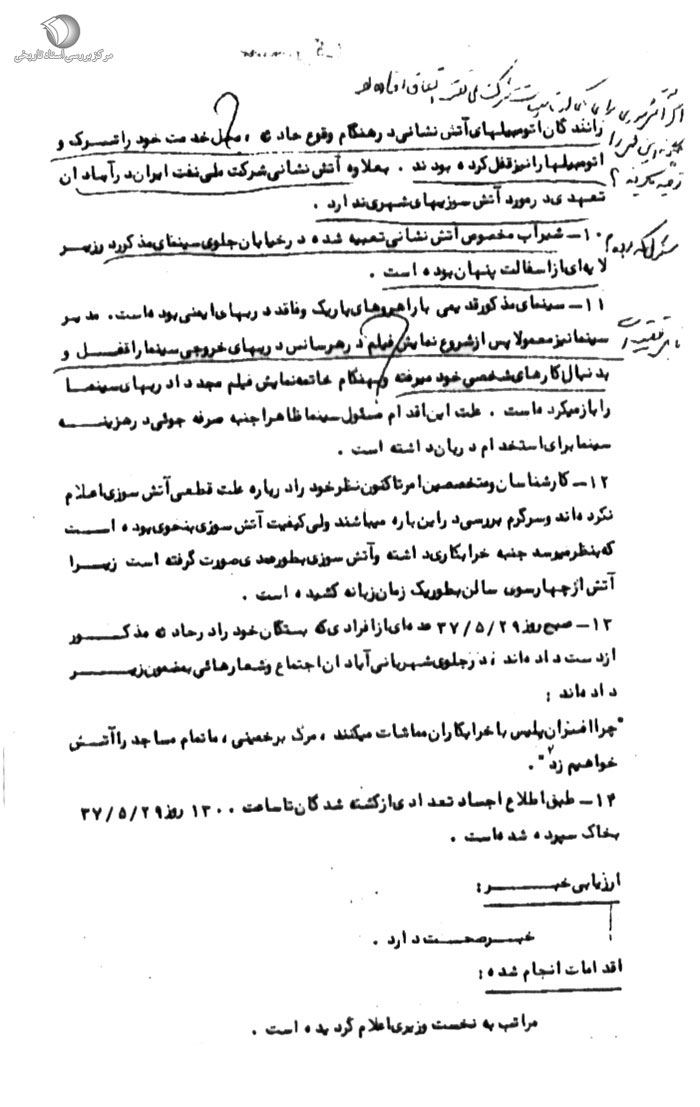 مرکز بررسی اسناد تاریخی
رانندگان اتومبیلهای آتش نشانی در هنگام وقوع حادثه ، محل خدمت خود را ترک و
اتومبیلها را نیز قفل کرده بودند . بعلاوه آتش نشانی شرکت ملی نفت ایران در آبادان
تعهدی در مورد آتش سوزیهای شهری ندارد .
۱۰- شیر آب مخصوص آتش نشانی تعبیه شده در خیابان جلوی سینمای مذکور در زیر
لایه‌ای از اسفالت پنهان بوده است .
۱۱- سینمای مذکور قدیمی با راهروهای باریک و فاقد دربهای ایمنی بوده‌است. مدیر
سینما نیز معمولا پس از شروع نمایش فیلم در هر سانس دربهای خروجی سینما را قفل و
بدنبال کارهای شخصی خود میرفته و بهنگام خاتمه نمایش فیلم مجددا دربهای سینما
را باز میکرده‌است . علت این اقدام مسئول سینما ظاهرا جنبه صرفه جوئی در هزینه
سینما برای استخدام دربان داشته است .
۱۲- کارشناسان و متخصصین امر تاکنون نظر خود را درباره علت قطعی آتش سوزی اعلام
نکرده‌اند و سرگرم بررسی در این باره میباشند ولی کیفیت آتش سوزی بنحوی بوده است
که بنظر میرسد جنبه خرابکاری داشته و آتش سوزی بطور عمدی صورت گرفته است زیرا
آتش از چهار سوی سالن بطور یک زمان زبانه کشیده است .
۱۳- صبح روز ۳۷/۵/۲۹ عده‌ای از افرادی که بستگان خود را در حادثه مذکور
از دست داده‌اند ، در جلوی شهربانی آبادان اجتماع و شعارهائی بمضمون زیر
داده‌اند :
"چرا افسران پلیس با خرابکاران مماشات میکنند ، مرگ بر خمینی ، ما تمام مساجد را آتش
خواهیم زد" .
۱۴- طبق اطلاع اجساد تعدادی از کشته شدگان تا ساعت ۱۳۰۰ روز ۳۷/۵/۲۹
بخاک سپرده شده‌است .
ارزیابی خبر :
خبر صحت دارد .
اقدامات انجام شده :
مراتب به نخست وزیری اعلام گردیده است .